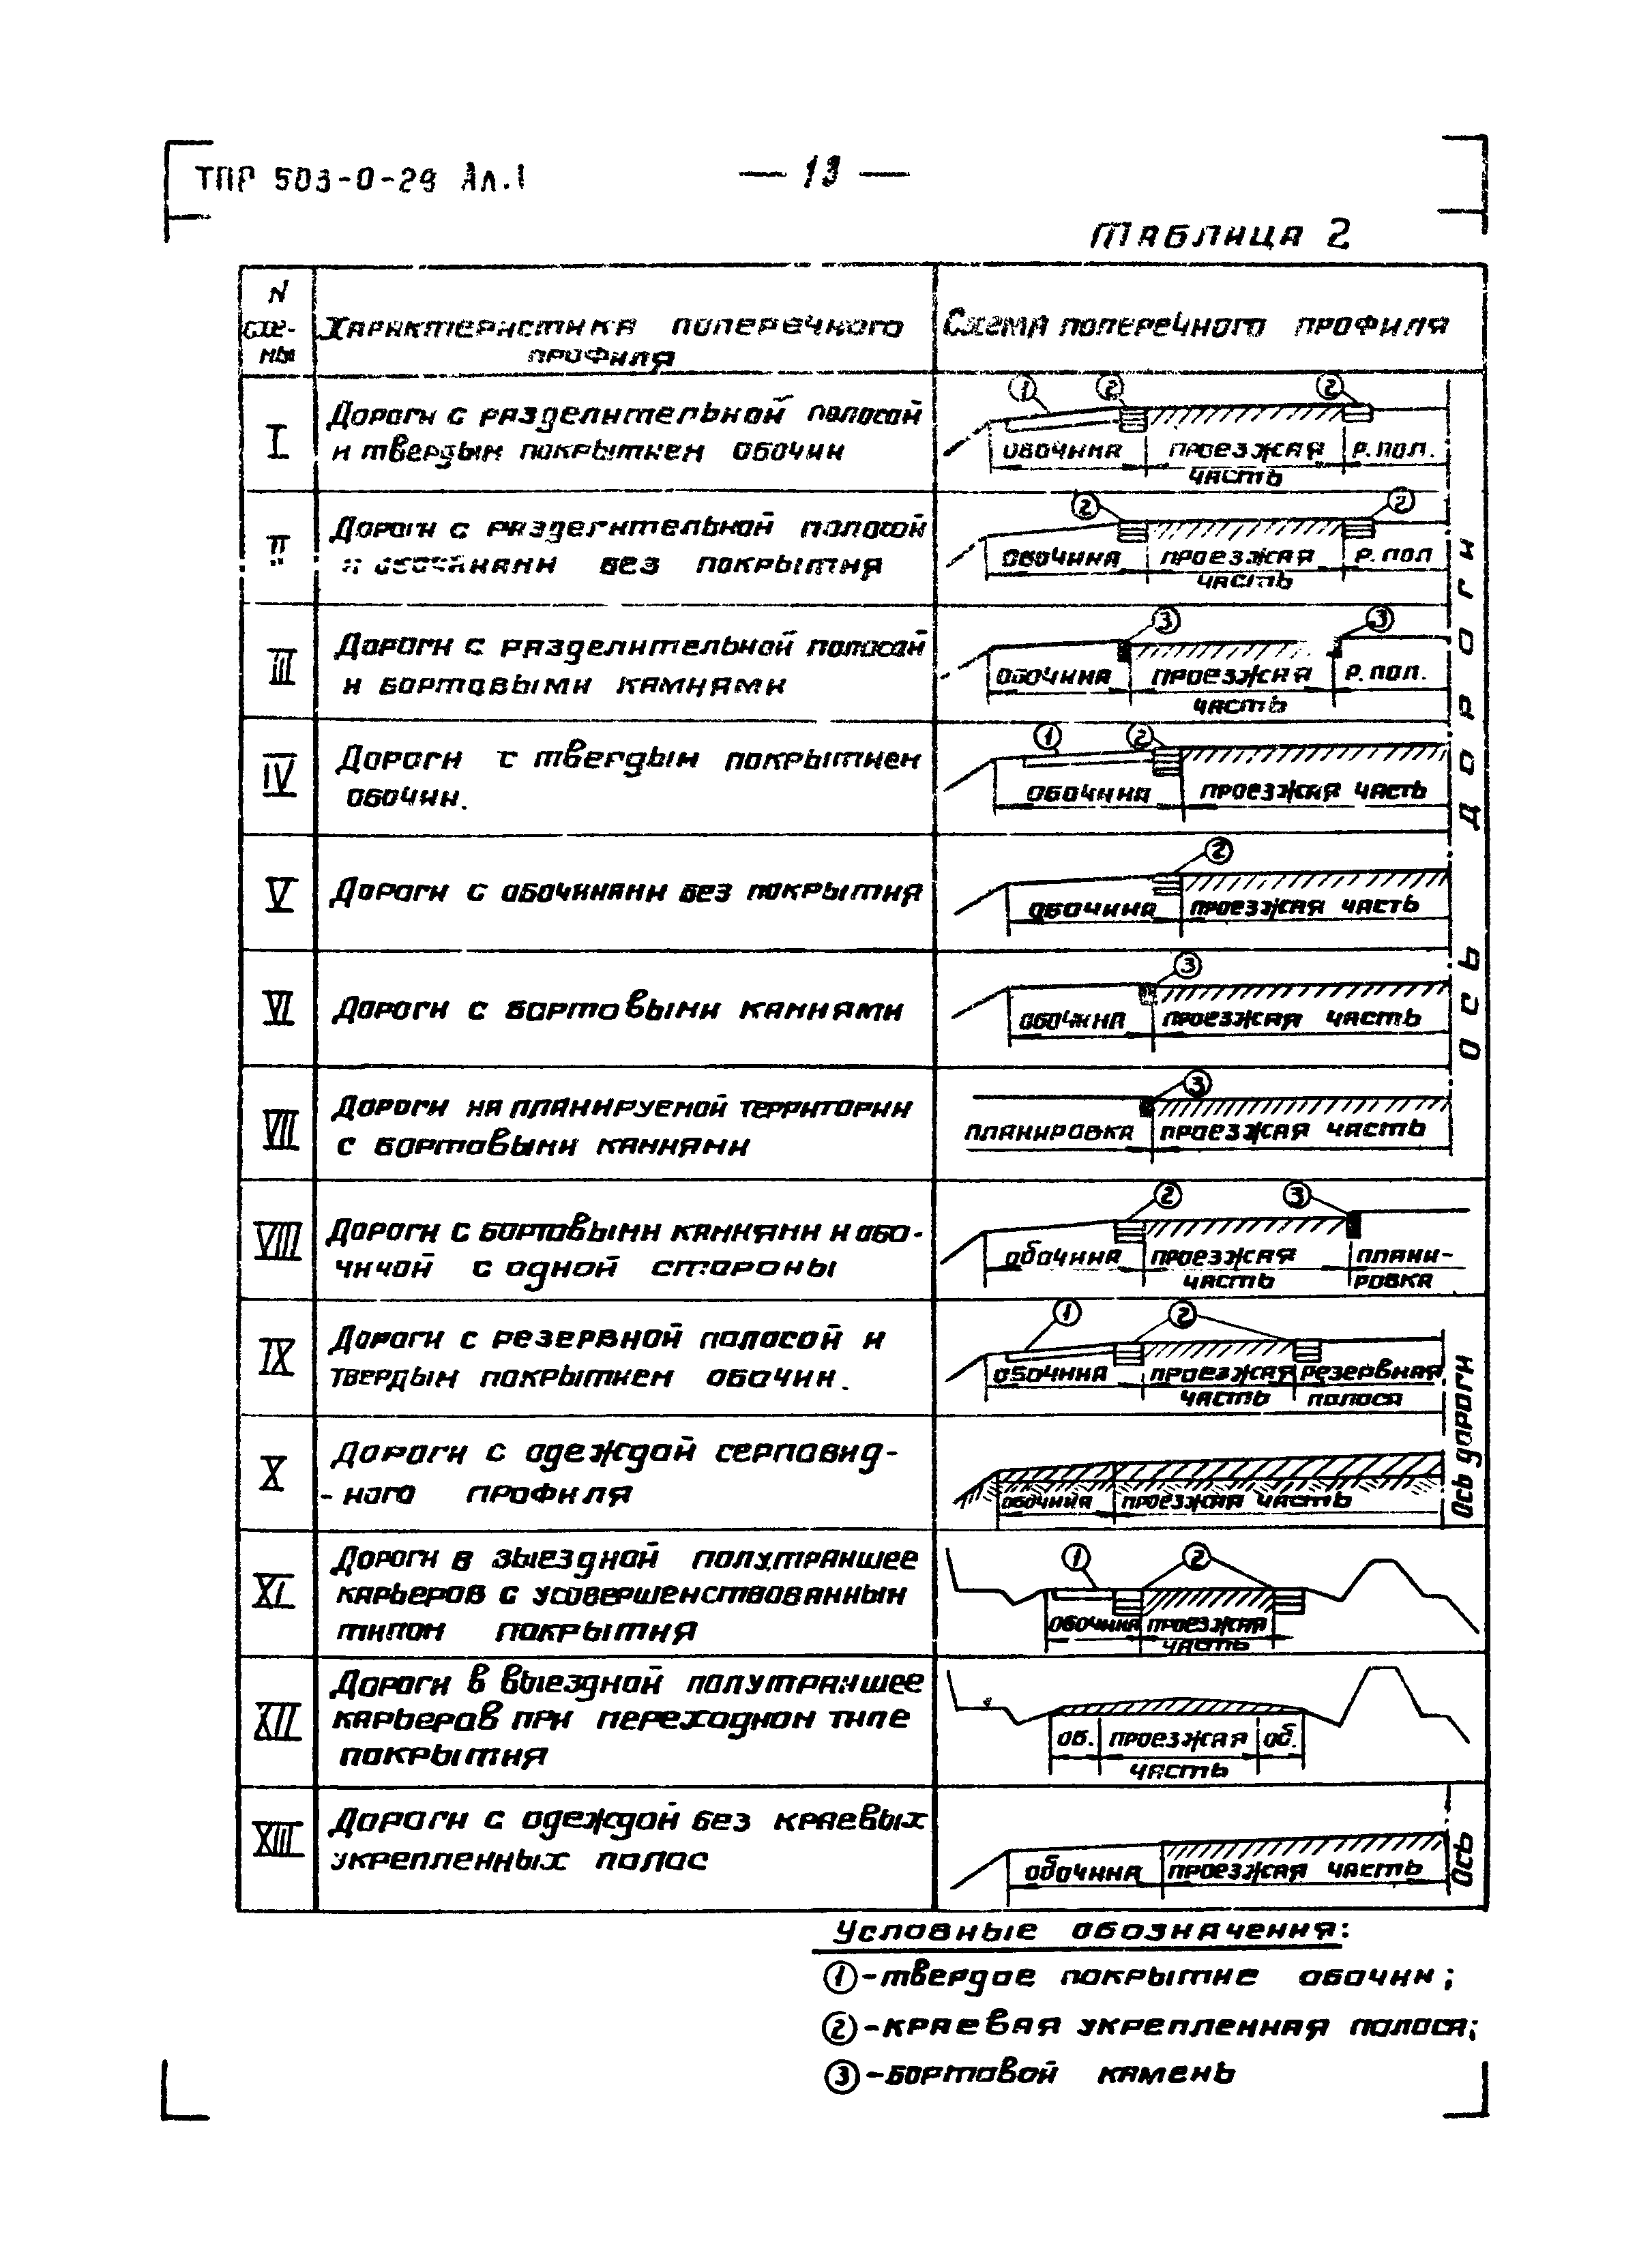 ТПР 503-0-29 Ал.1
— 13 —
Таблица 2
N схе-
мы
Характеристика поперечного
профиля
Схема поперечного профиля
I
Дороги с разделительной полосой
и твердым покрытием обочин
1 2 2
обочина проезжая р. пол.
часть
II
Дороги с разделительной полосой
и обочинами без покрытия
2 2
обочина проезжая р. пол
часть
III
Дороги с разделительной полосой
и бортовыми камнями
3 3
обочина проезжая р. пол.
часть
IV
Дороги с твердым покрытием
обочин.
1 2
обочина проезжая часть
V
Дороги с обочинами без покрытия
2
обочина проезжая часть
VI
Дороги с бортовыми камнями
3
обочина проезжая часть
VII
Дороги на планируемой территории
с бортовыми камнями
3
планировка проезжая часть
Ось дороги
VIII
Дороги с бортовыми камнями и обо-
чиной с одной стороны
2 3
обочина проезжая плани-
часть ровка
IX
Дороги с резервной полосой и
твердым покрытием обочин.
1 2
обочина проезжая резервная
часть полоса
X
Дороги с одеждой серповид-
-ного профиля
обочина проезжая часть
Ось дороги
XI
Дороги в выездной полутраншее
карьеров с усовершенствованным
типом покрытия
1 2
обочина проезжая
часть
XII
Дороги в выездной полутраншее
карьеров при переходном типе
покрытия
об. проезжая об.
часть
XIII
Дороги с одеждой без краевых
укрепленных полос
обочина проезжая часть
Ось
Условные обозначения:
1 - твердое покрытие обочин;
2 - краевая укрепленная полоса;
3 - бортовой камень